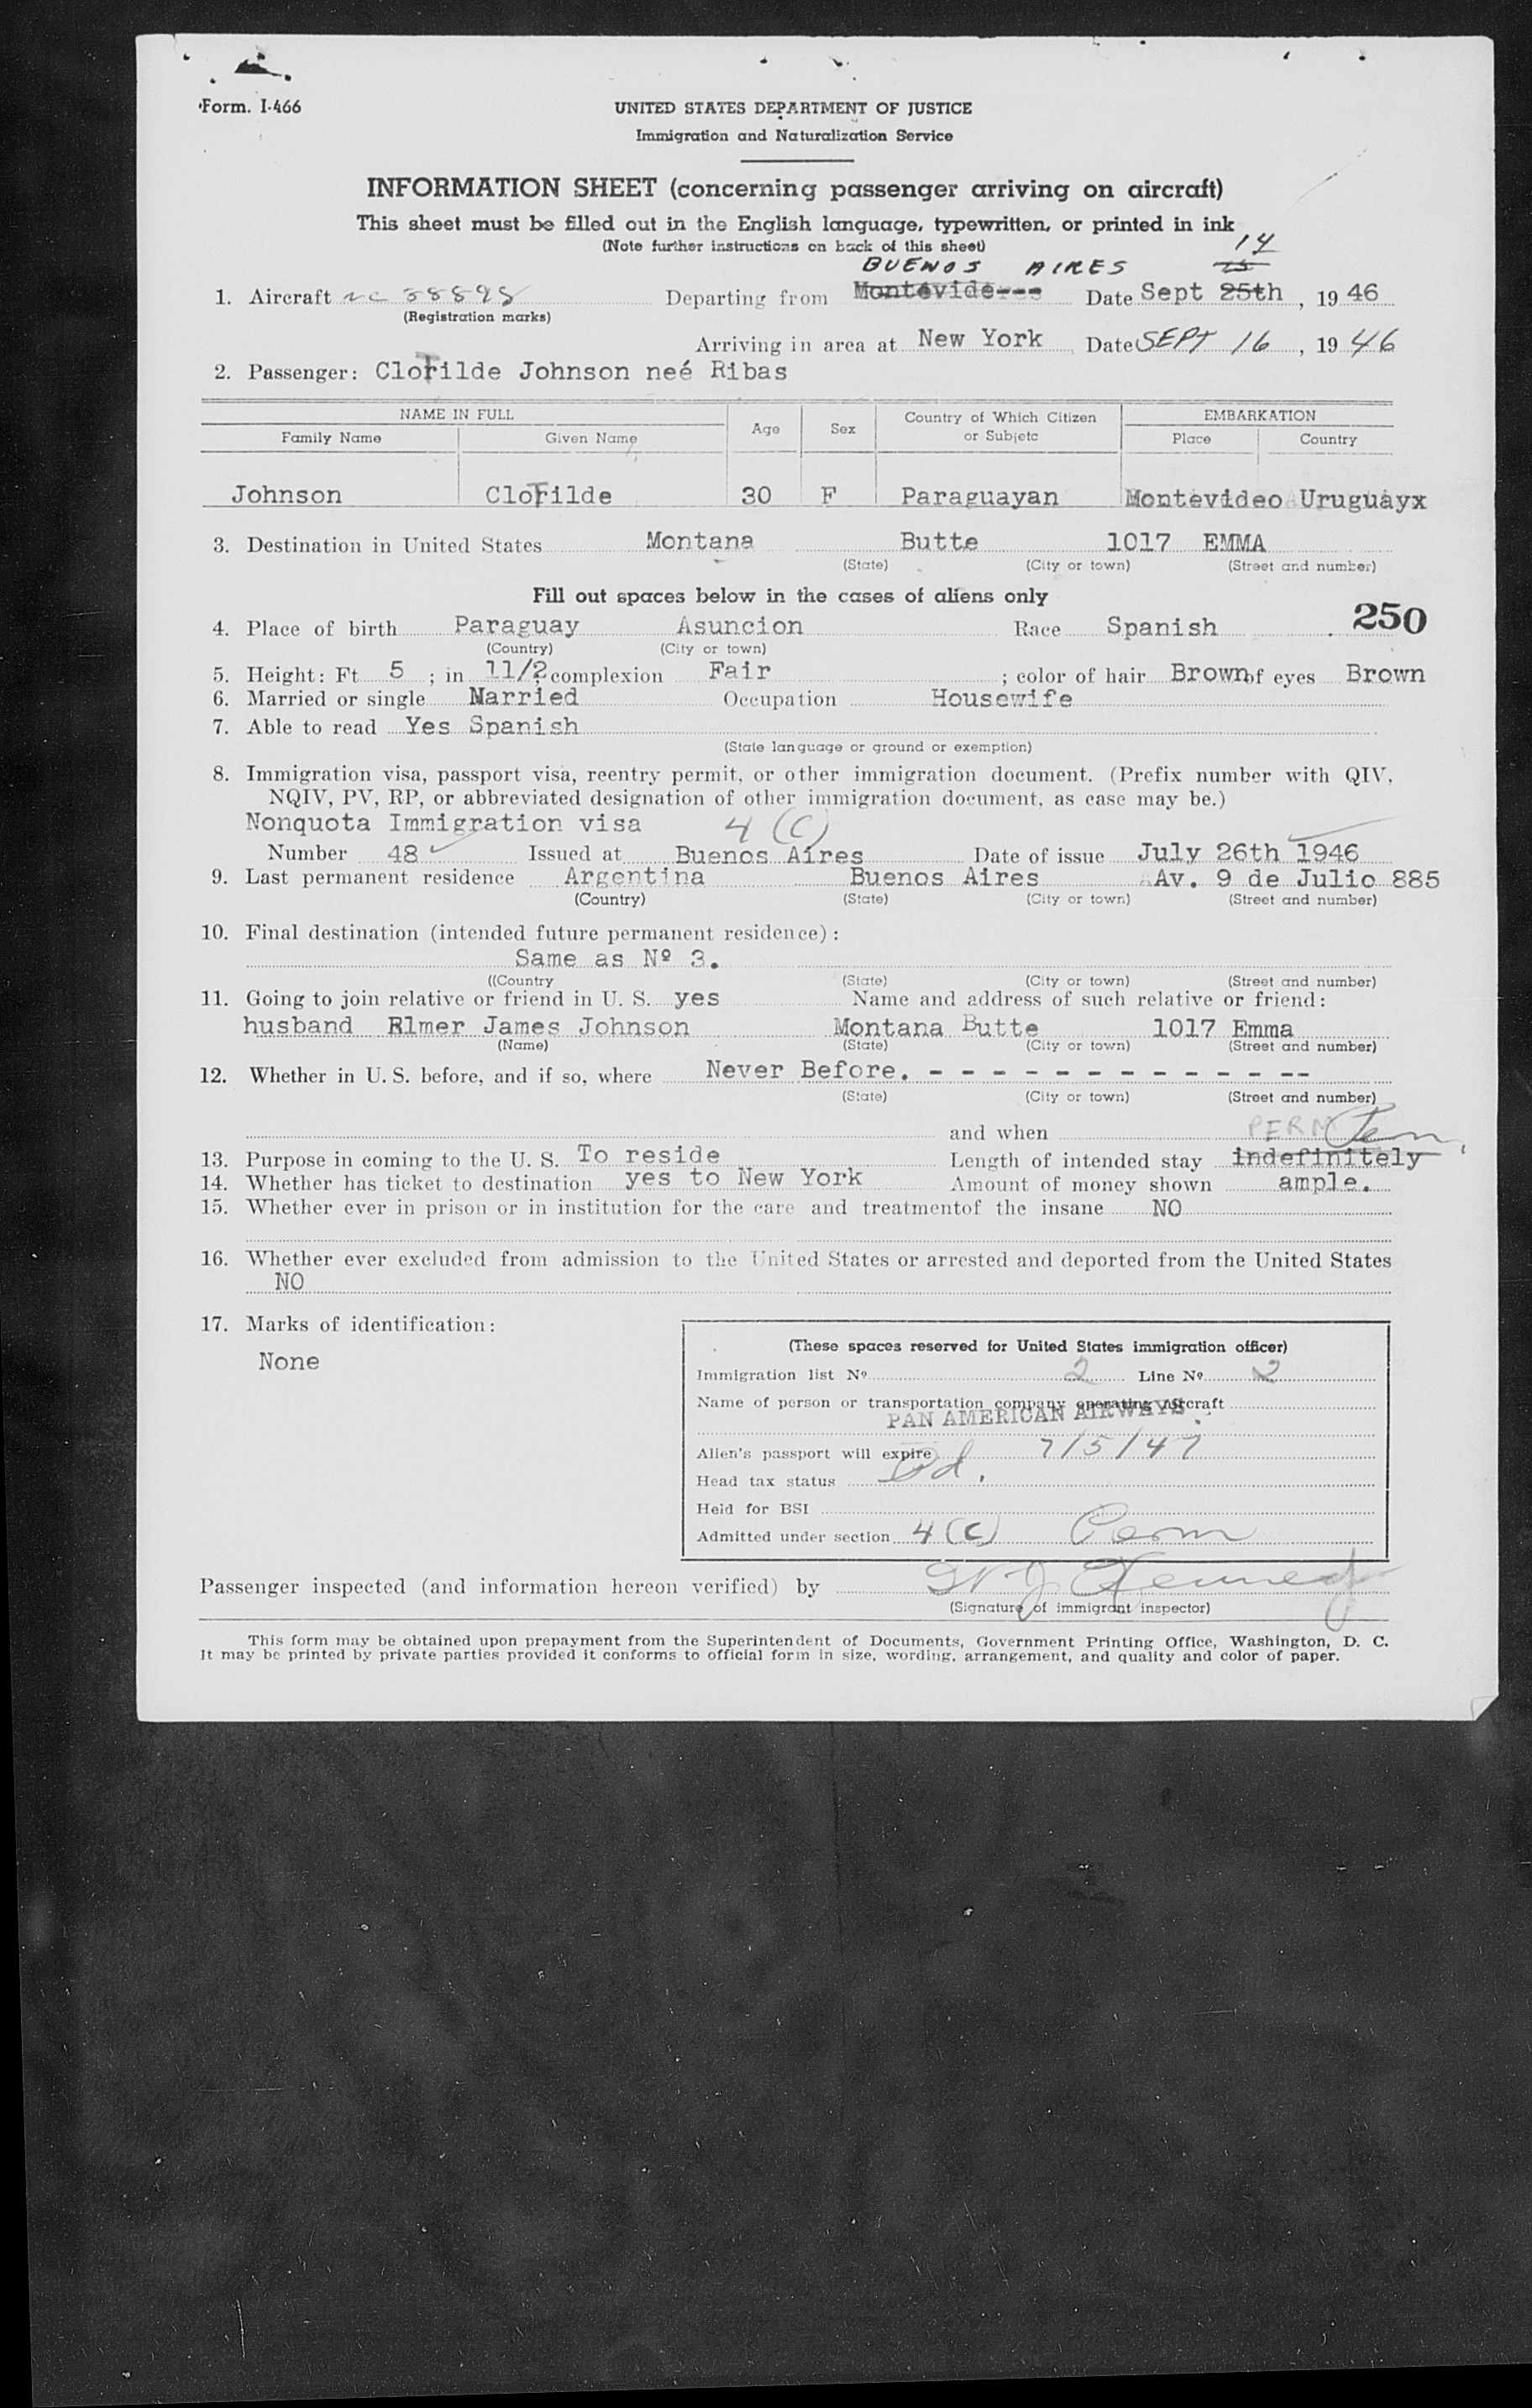 Form. I-466
UNITED STATES DEPARTMENT OF JUSTICE
Immigration and Naturalization Service
INFORMATION SHEET (concerning passenger arriving on aircraft)
This sheet must be filled out in the English language, typewritten, or printed in ink
(Note further instructions on back of this sheet)
14
BUENOS AIRES 15
1. Aircraft NC 88898 Departing from Montevide--- Date Sept 25th, 19 46
(Registration marks)
Arriving in area at New York Date SEPT 16, 19 46
2. Passenger: Clotilde Johnson neé Ribas
NAME IN FULL Age Sex Country of Which Citizen or Subjetc EMBARKATION
Family Name Given Name Place Country
Johnson Clotilde 30 F Paraguayan Montevideo Uruguayx
3. Destination in United States Montana Butte 1017 EMMA
(State) (City or town) (Street and number)
Fill out spaces below in the cases of aliens only
250
4. Place of birth Paraguay Asuncion Race Spanish
(Country) (City or town)
5. Height: Ft 5 ; in 11/2 complexion Fair ; color of hair Brown of eyes Brown
6. Married or single Married Occupation Housewife
7. Able to read Yes Spanish
(State language or ground or exemption)
8. Immigration visa, passport visa, reentry permit, or other immigration document. (Prefix number with QIV,
NQIV, PV, RP, or abbreviated designation of other immigration document, as case may be.)
Nonquota Immigration visa 4 (C)
Number 48 Issued at Buenos Aires Date of issue July 26th 1946
9. Last permanent residence Argentina Buenos Aires Av. 9 de Julio 885
(Country) (State) (City or town) (Street and number)
10. Final destination (intended future permanent residence):
Same as Nº 3.
((Country (State) (City or town) (Street and number)
11. Going to join relative or friend in U. S. yes Name and address of such relative or friend:
husband Elmer James Johnson Montana Butte 1017 Emma
(Name) (State) (City or town) (Street and number)
12. Whether in U. S. before, and if so, where Never Before. - - - - - - - - - - - --
(State) (City or town) (Street and number)
and when PERM Perm
13. Purpose in coming to the U. S. To reside Length of intended stay indefinitely
14. Whether has ticket to destination yes to New York Amount of money shown ample.
15. Whether ever in prison or in institution for the care and treatmentof the insane NO
16. Whether ever excluded from admission to the United States or arrested and deported from the United States
NO
17. Marks of identification:
None
(These spaces reserved for United States immigration officer)
Immigration list Nº 2 Line Nº 2
Name of person or transportation company operating aircraft
PAN AMERICAN AIRWAYS
Alien's passport will expire 7/5/47
Head tax status Pd.
Held for BSI
Admitted under section 4 (C) Perm
Passenger inspected (and information hereon verified) by W J Kennedy
(Signature of immigrant inspector)
This form may be obtained upon prepayment from the Superintendent of Documents, Government Printing Office, Washington, D. C.
It may be printed by private parties provided it conforms to official form in size, wording, arrangement, and quality and color of paper.